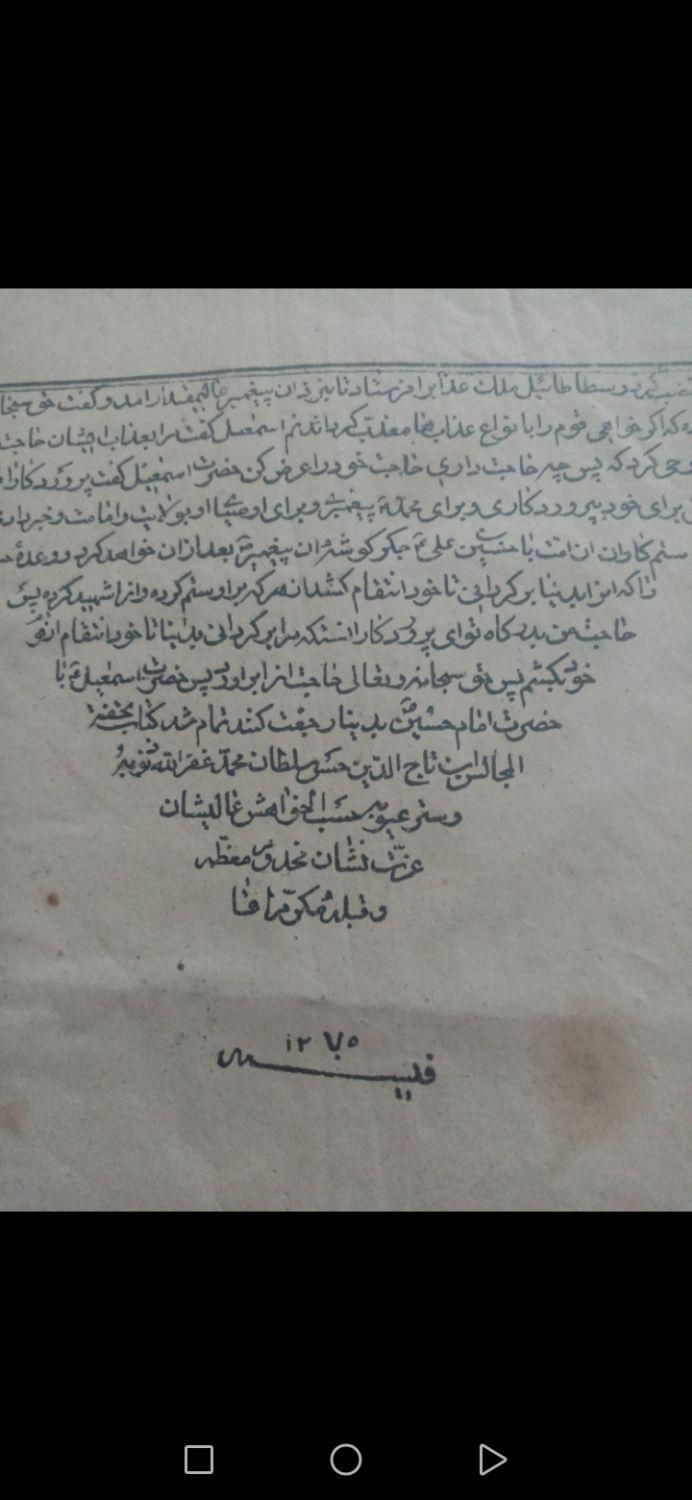 غضب کرد و سطاطائیل ملک عذابرا فرستاد تا بنزد ان پیغمبر عالیمقدار امد و گفت حق سبحا
که اکر خواهی قوم را بانواع عذابها معذب کردانم اسمعیل کفت مرا بعذاب ایشان حاجت
وحی کرد که پس چه حاجت داری حاجت خود را عرض کن حضرت اسمعیل کفت پروردکارا
برای خود بپروردکاری و برای محمد به پیغمبری و برای اوصیای او بولایت و امامت و خبر دا
ستمکاران ان امت با حسین بن علی ع جکر کوشه ان پیغمبر بعد از ان خواهد کرد و وعدهٔ
را که او را بدنیا بر کردانی تا خود انتقام کشد از هر که بر او ستم کرده و او را شهید کرده پس
حاجت من بدرکاه تو ای پروردکار انستکه مرا بر کردانی بدنیا تا خود انتقام از قو
خود بکشم پس حق سبحانه و تعالی حاجت او را براورد پس حضرت اسمعیل ع با
حضرت امام حسین ع بدنیا رجعت کنند تمام شد کتاب تحفة
المجالس ابن تاج الدین حسن سلطان محمد غفر الله ذنوبه
و ستر عیوبه حسب الخواهش عالیشان
عزت نشان مخدوم معظم
و قبله مکرم اقا
۱۲۷۵